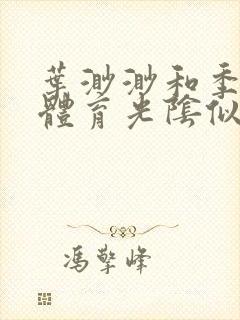 葉渺渺和季
體育光陰似
馮擎峰